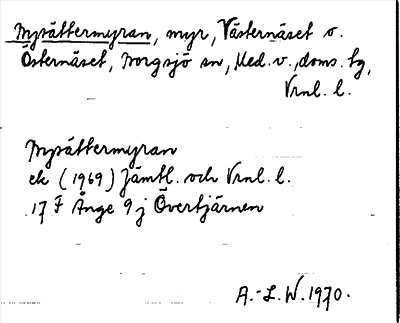 Mysättermyran, myr, Västernäset o.
Östernäset, Borgsjö sn, Med. v., doms. tg,
Vrnl. l.
Mysättermyran
ek (1969) Jämtl. och Vrnl. l.
17 F Ånge 9 j Övertjärnen
A.-L.W. 1970.